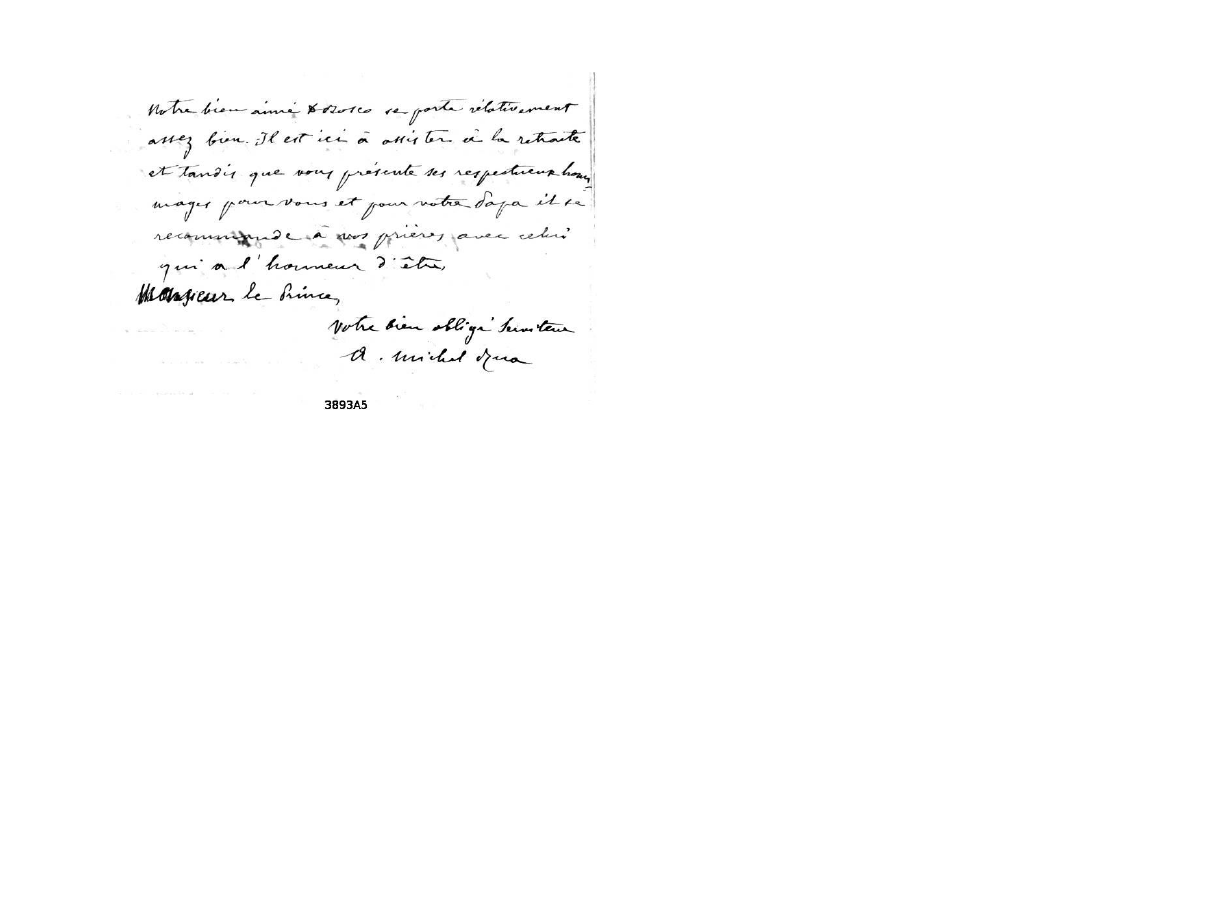 Notre bien aimé D Bosco se porte rélativement
assez bien. Il est ici à assister à la retraite
et tandis que vous présente ses respectueux hom-
mages pour vous et pour votre Papa il se
recommande à vos prières avec celui
qui a l'honneur d'être,
Monsieur le Prince,
Votre bien obligé Serviteur
A. Michel Rua
3893A5